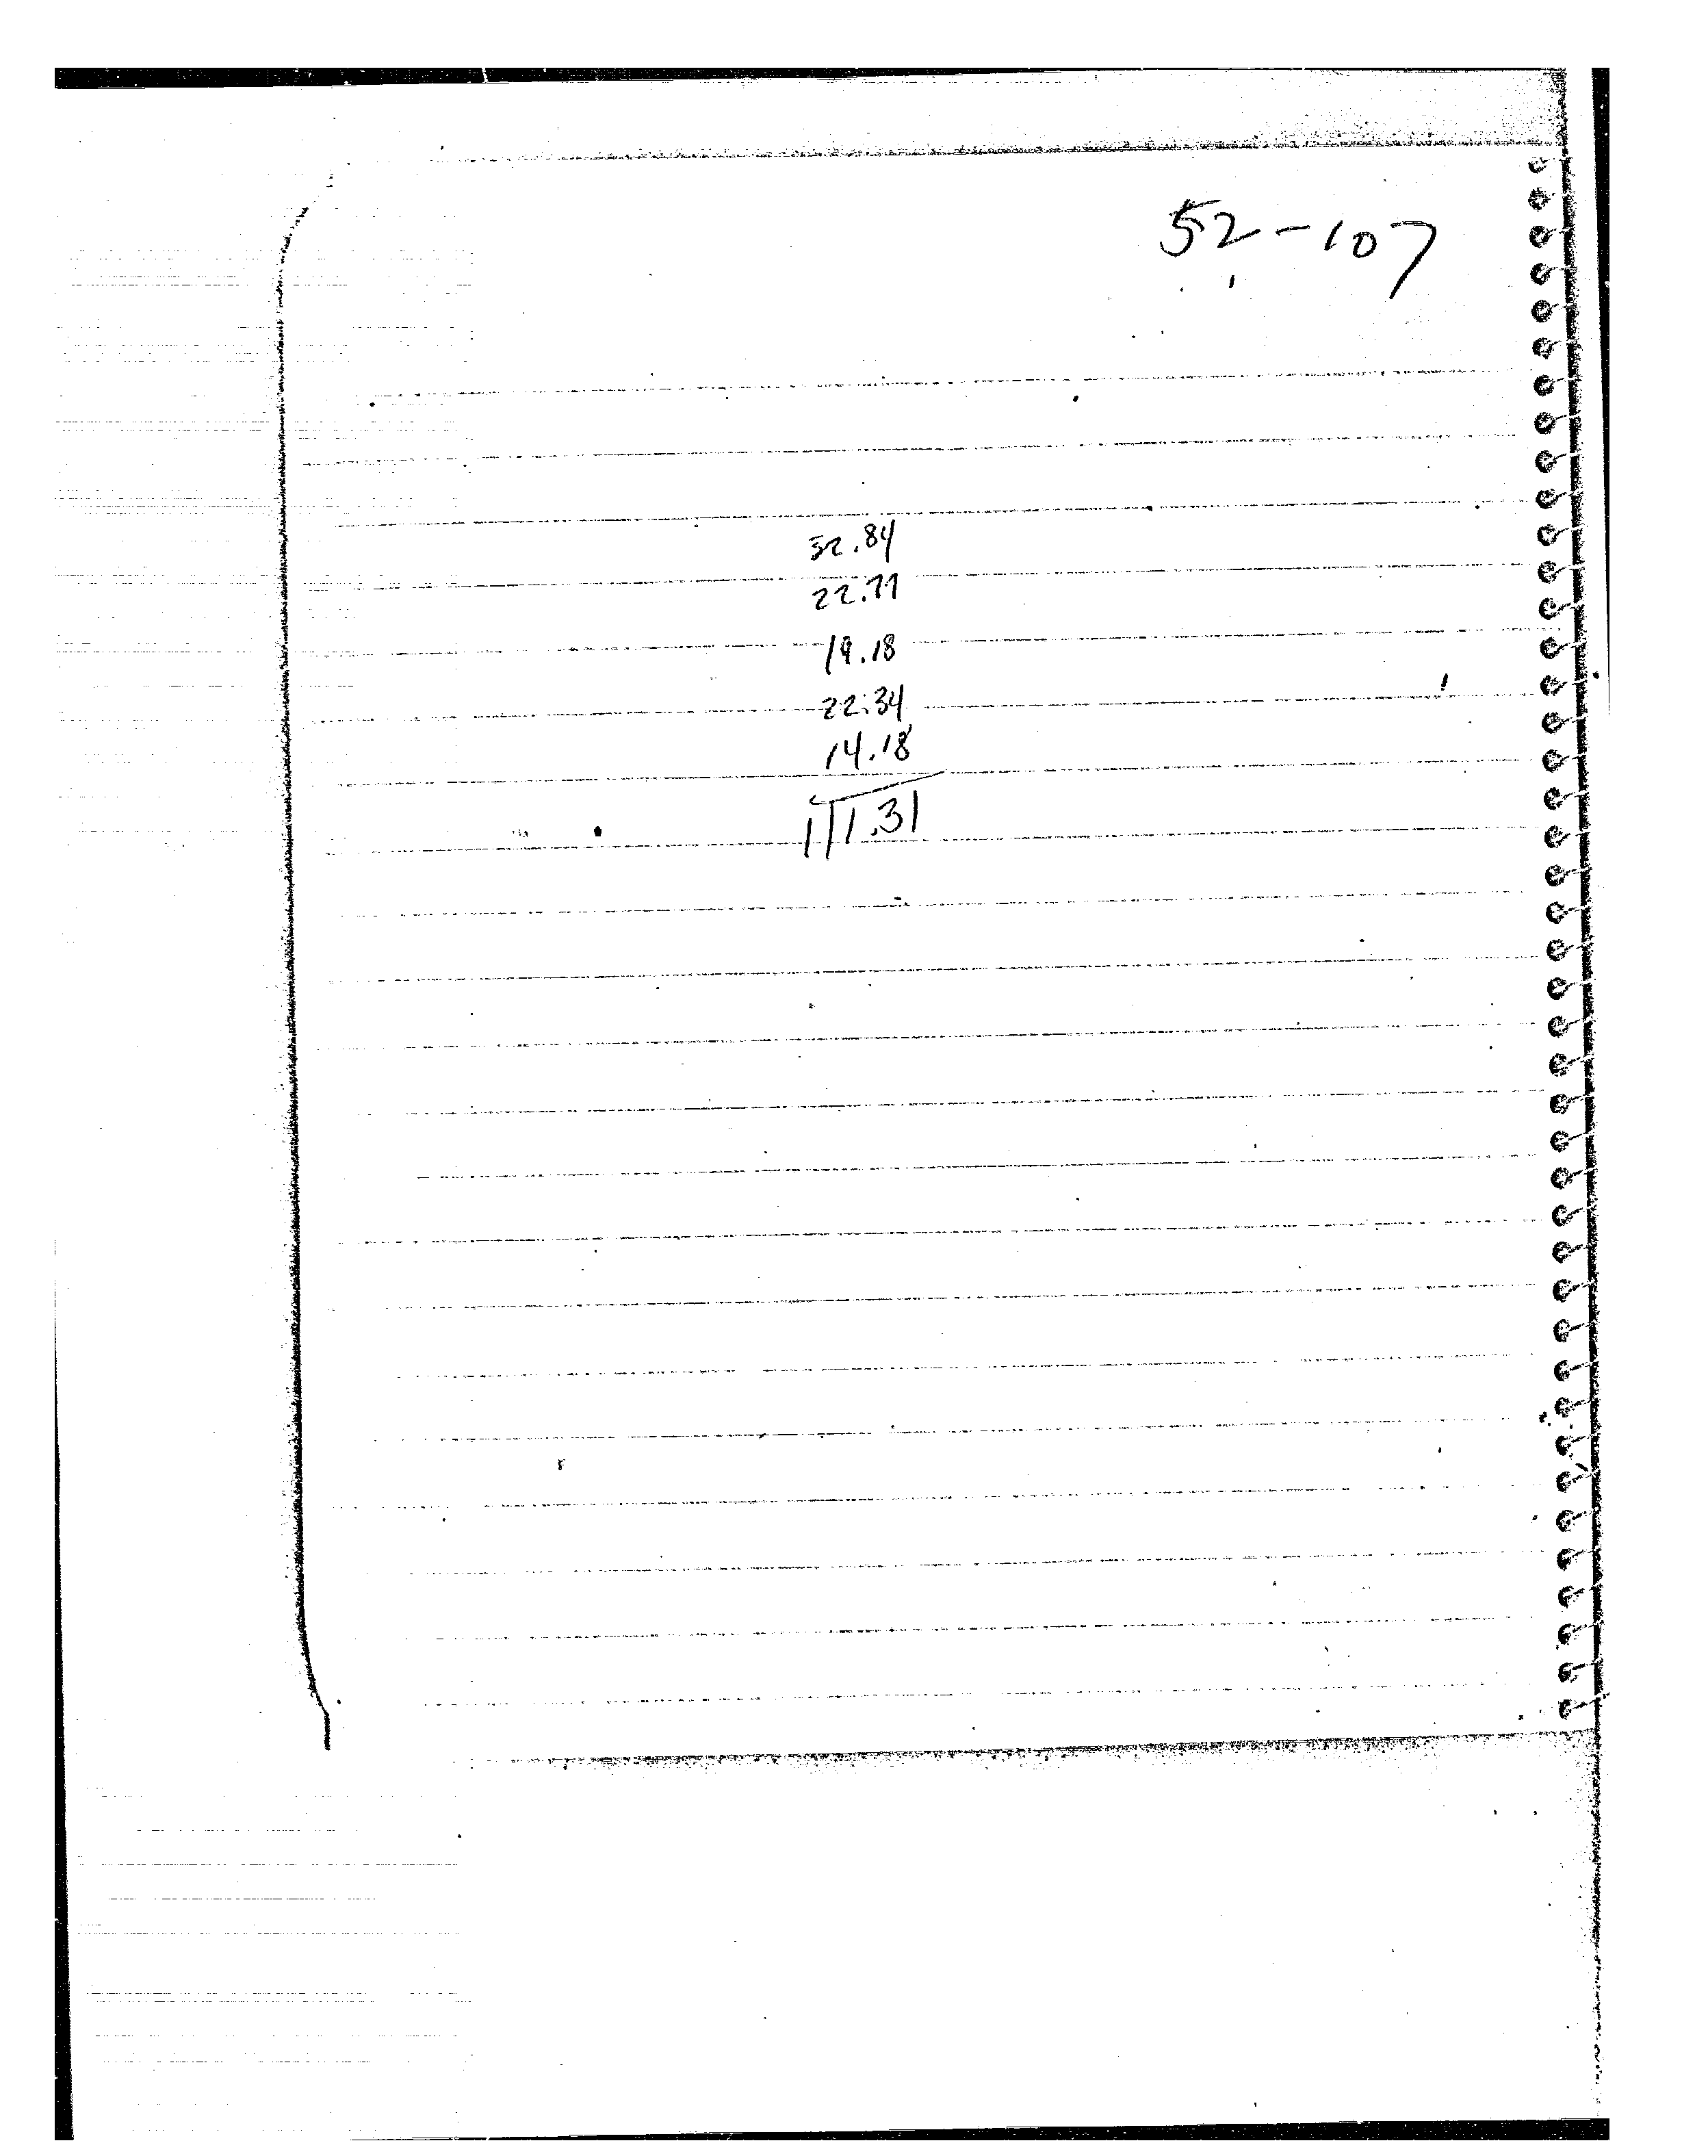 52-107
32.84
22.77
19.18
22.34
14.18
111.31